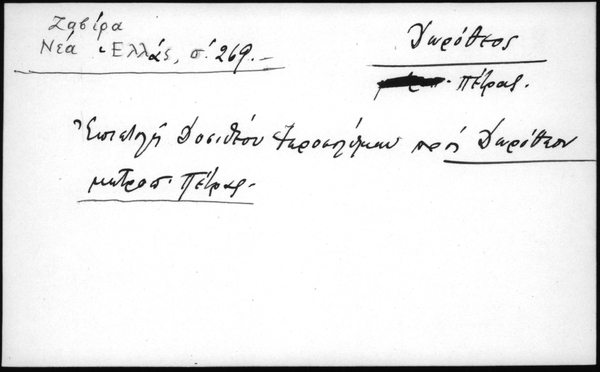 Ζαβίρα
Νέα Ἑλλάς, σ. 269.-
Δωρόθεος
Πέτρας.
Ἐπιστολὴ Δοσιθέου Ἱεροσολύμων πρὸς Δωρόθεον
μητροπ. Πέτρας.-